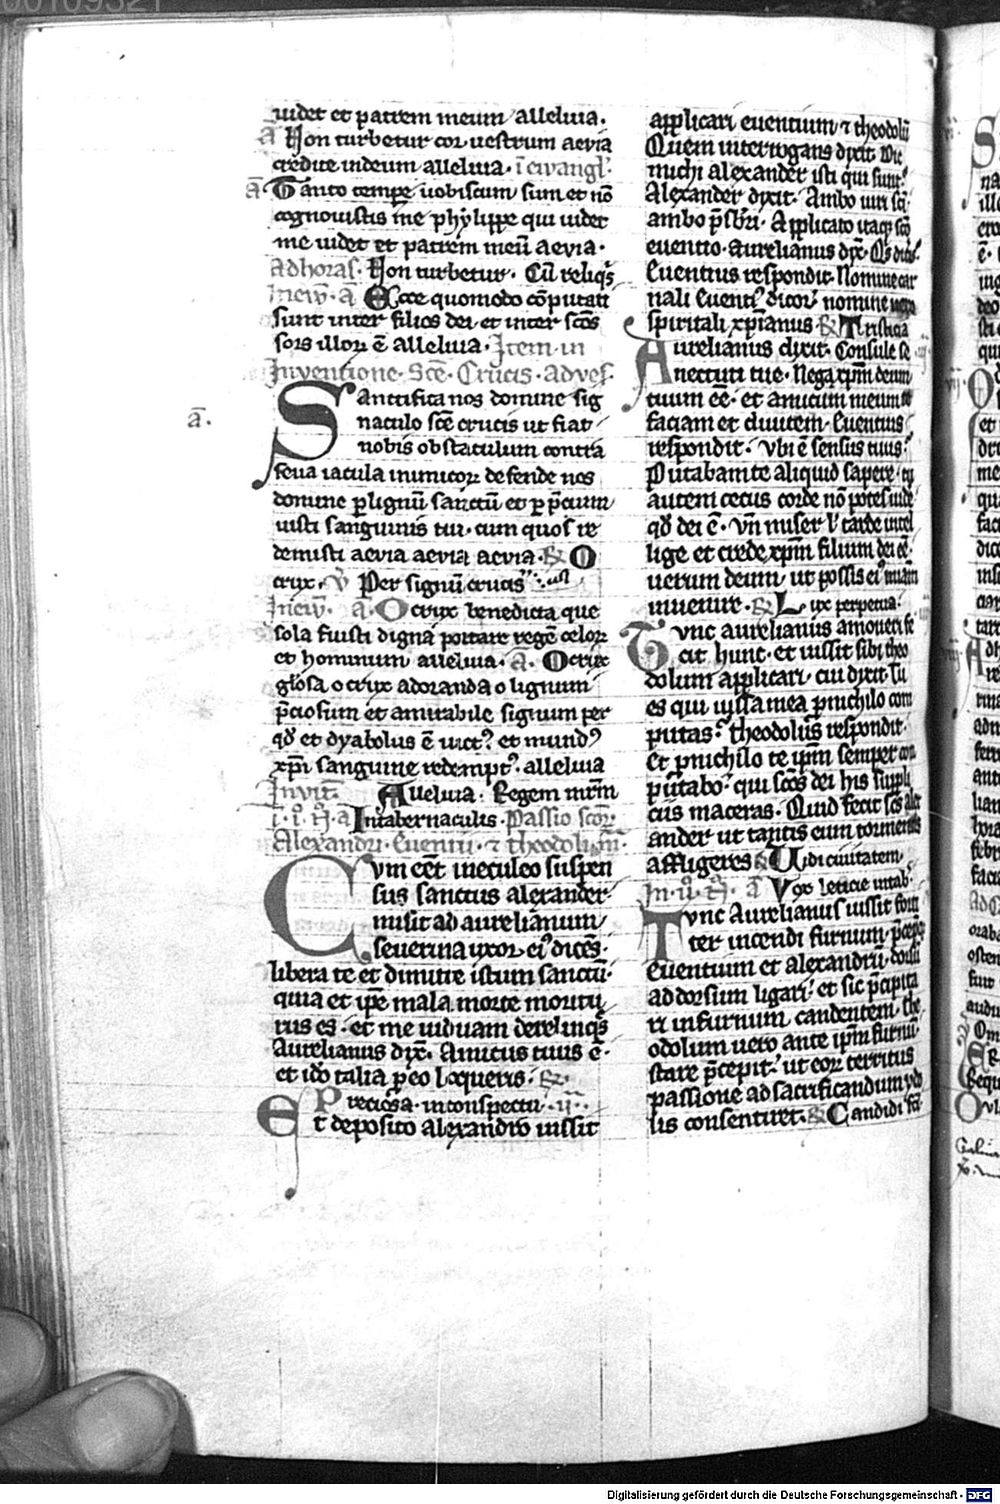 uidet et patrem meum alleluia.
a Non turbetur cor uestrum aevia
credite indeum alleluia. i ewangl'.
a. Tanto tempe uobiscum sum et nō
cognouistis me phylippe qui uidet
me uidet et patrem meū aevia.
Adhoras. Non turbetur. Cū reliqs
Inew. a Ecce quomodo cōputati
sunt inter filios dei et inter scōs
sors illoꝝ ē alleluia. Item in
Inventione. Sce. Crucis. ad ves.
a. Sanctifica nos domine sig
naculo scē crucis ut fiat
nobis obstaculum contra
seua iacula inimicoꝝ defende nos
domine ꝑ lignū sanctū et ꝑ p̄cium
iusti sanguinis tui. cum quo ſ re
demisti aevia aevia aevia. R O
crux. v Per signū crucis
Inew. a. O crux benedicta que
sola fuisti digna portare regē celoꝝ
et hominum alleluia. a. O crux
gl̄osa o crux adoranda o lignum
p̄ciosum et amirabile signum per
qd̄ et dyabolus ē uict⁹ et mund⁹
xp̄i sanguine redempt⁹. alleluia
Invit. Alleluia. Regem mr̄m
i. i. N. a In tabernaculis. Passio scoꝝ
Alexandri. Eventii. ⁊ theodoli m̄.
Cvm eēt ineculeo suspen
sus sanctus alexander
misit ad aurelianum
seuerina uxor ei⁹ dicēs.
libera te et dimitte istum sanctū.
quia et ip̄e mala morte moritu
rus es. et me uiduam derelinqs
Aurelianus dix̄. Amicus tuus ē.
et ido talia ꝑ eo loqueris. R.
Preciosa. in conspectu. ii.
Et deposito alexandro iussit
applicari euentium ⁊ theodolū
Quem interrogans dixit. Dic
michi alexander isti qui sunt.
Alexander dixit. Ambo uiri sc̄i
ambo p̄sbri. Applicato itaqꝫ scō
euentio. aurelianus dix̄.
Euentius respondit. Nomine car
nali Euenti⁹ dicor. nomine
spiritali xp̄ianus R Tristicia
Aurelianus dixit. Consule se
nectuti tue. Nega xp̄m deum
tuum eē. et amicum meum te
faciam et diuitem. Euentius
respondit. Vbi ē sensus tuus?
Putabam te aliquid sapere.
autem cecus corde nō potes uide
qd̄ dei ē. Vn̄ miser l' tarde intel
lige et crede xp̄m filium dei eē.
uerum deum. ut possis ei⁹ miām
inuenire. R Lux perpetua.
Tvnc aurelianus amoueri fe
cit hunc. et iussit sibi theo
dolum applicari. cui dixit. Tu
es qui iussa mea ꝑnichilo com
putas? theodolus respondit.
Et ꝑnichilo te ip̄m semper con
p̄utabo. qui scōs dei his suppli
ciis maceras. Quid fecit scs alex
ander ut tantis eum tormentis
affligeres R Vidi ciuitatem.
In. ii. N. a Vox leticie intab'.
Tvnc Aurelianus iussit forti
ter incendi furnum. p̄cepit
Euentium et alexandrū. dorsū
ad dorsum ligari. et sic p̄cipita
ri in furnum candentem. the
odolum uero ante ip̄m furnū
stare p̄cepit. ut eoꝝ territus
passione ad sacrificandum ydo
lis consentiret. R Candidi
Digitalisierung gefördert durch die Deutsche Forschungsgemeinschaft - DFG